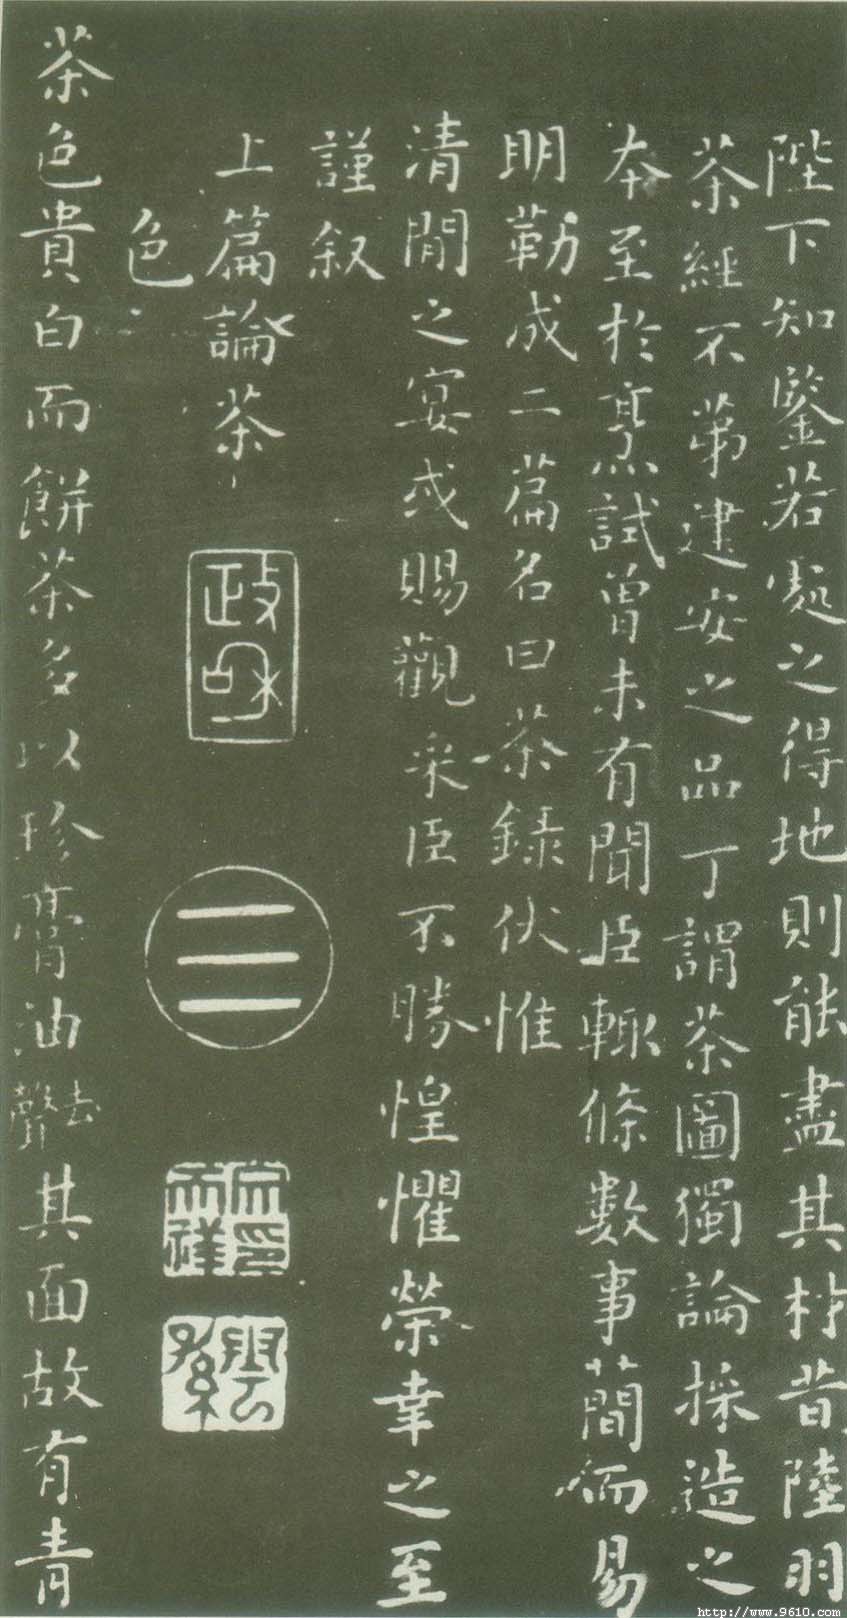 陛下知鑒若處之得地則能盡其材昔陸羽
茶經不第建安之品丁謂茶圖獨論採造之
本至於烹試曾未有聞臣輒條數事蕳而易
明勒成二篇名曰茶録伏惟
清閒之宴或賜觀采臣不勝惶懼榮幸之至
謹叙
上篇論茶
色
茶色貴白而餅茶多以珍膏油去聲其面故有青
政和
http://www.9610.com